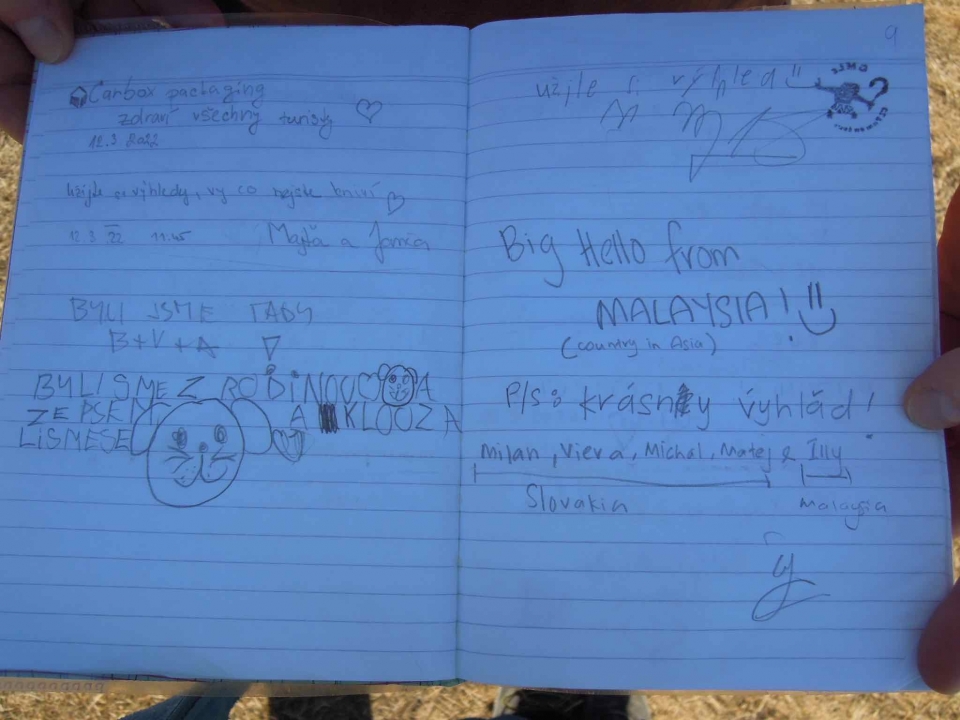 Canbox packaging
zdraví všechny turisty
12.3 2022
užijte si výhledy, vy co nejste líní
12.3 22 11:45 Majda a
BYLI JSME TADY
B+V+A
BYLI SME Z RODINOUCO A
ZE PSEM A KLOUZA
LISMESE
9
užijte si výhled
Big Hello from
MALAYSIA!
(country in Asia)
P/S: krásny výhlád!
Milan, Viera, Michal, Matej & Illy
Slovakia Malaysia